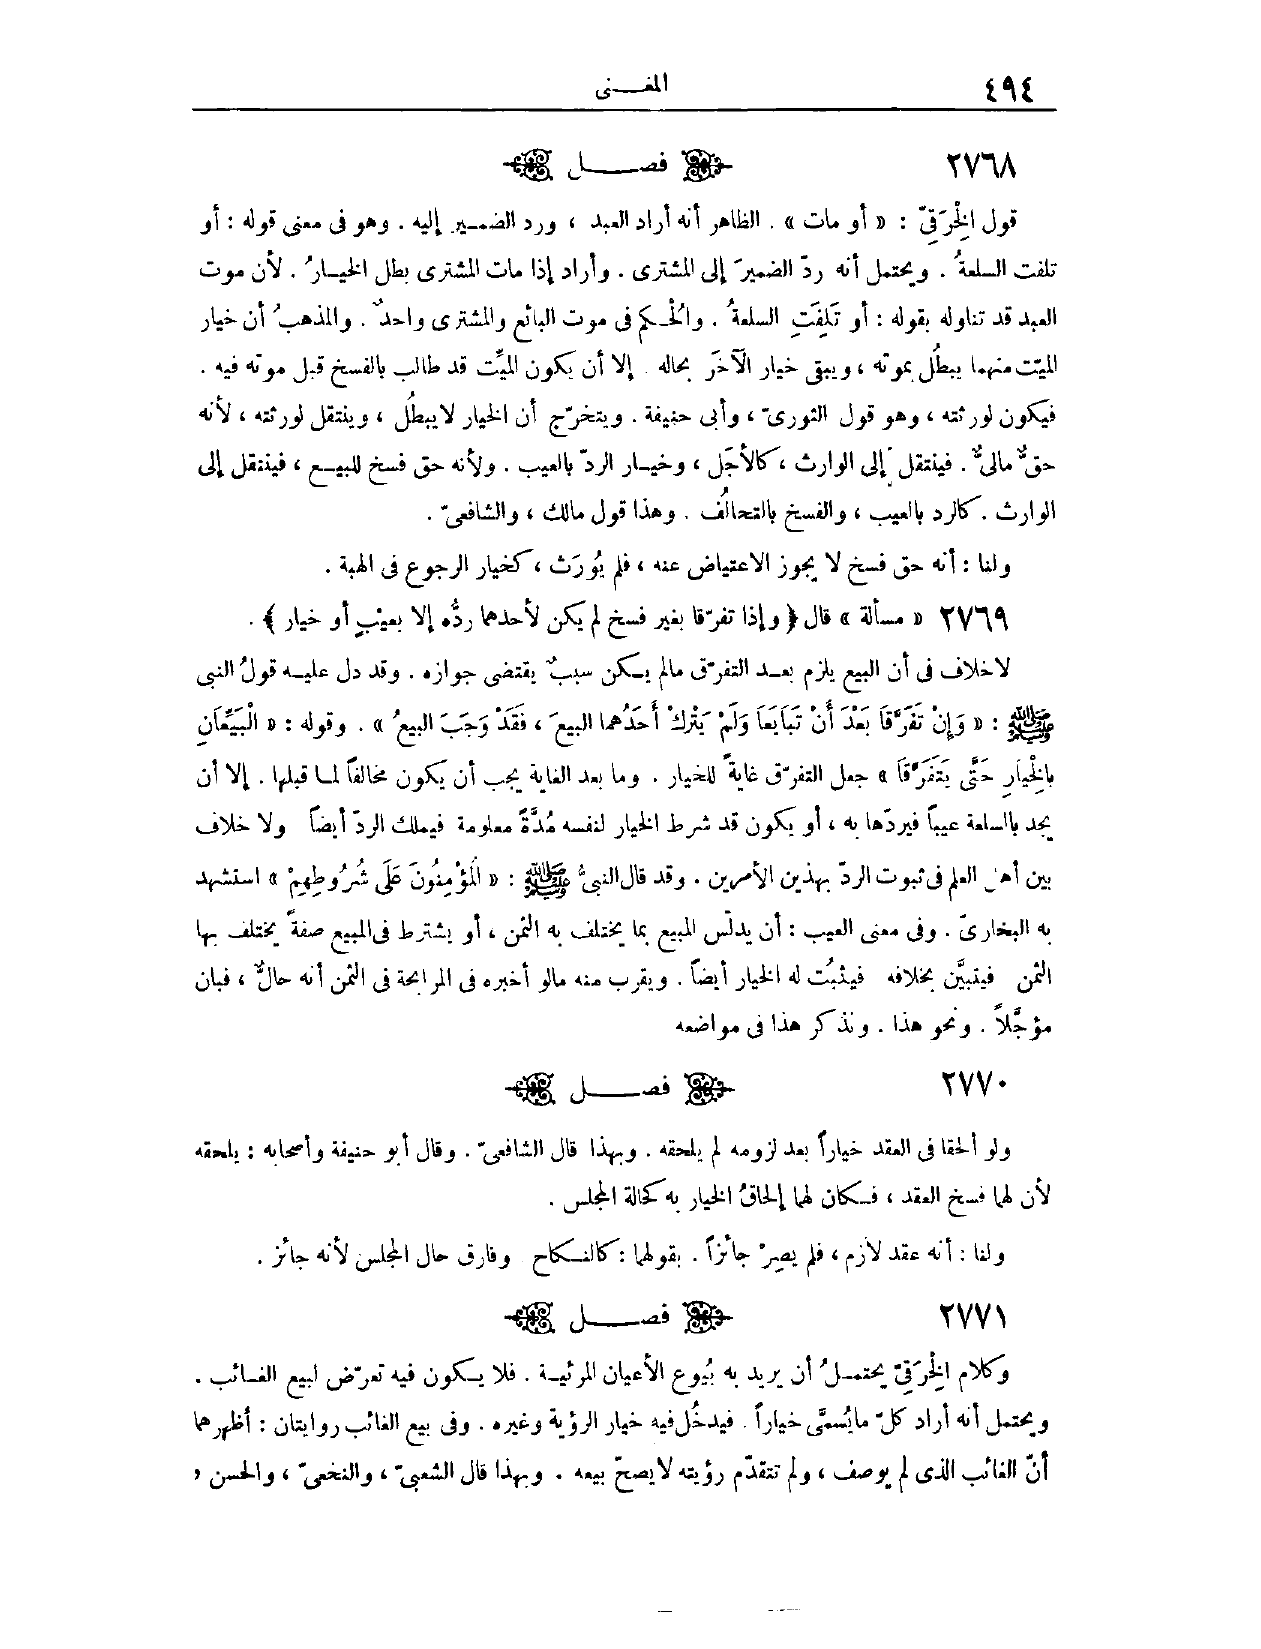 ٤٩٤
المغــنى
٢٧٦٨
فصــــل
قول الخِرَقِىّ : « أو مات » . الظاهر أنه أراد العبد ، ورد الضمـير إليه . وهو فى معنى قوله : أو
تلفت السلعةُ . ويحتمل أنه ردّ الضميرَ إلى المشترى . وأراد إذا مات المشترى بطل الخيـارُ . لأن موت
العبد قد تناوله بقوله : أو تَلِفَتِ السلعةُ . والحُـكم فى موت البائع والمشترى واحدٌ . والمذهبُ أن خيار
الميّت منهما يبطُل بموته ، ويبقى خيار الآخَر بحاله . إلا أن يكون الميِّت قد طالب بالفسخ قبل موته فيه .
فيكون لورثته ، وهو قول الثورىّ ، وأبى حنيفة . ويتخرّج أن الخيار لا يبطُل ، وينتقل لورثته ، لأنه
حقٌّ مالىٌّ . فينتقل إلى الوارث ، كالأجَل ، وخيـار الردّ بالعيب . ولأنه حق فسخ للبيـع ، فينتقل إلى
الوارث . كالرد بالعيب ، والفسخ بالتحالُف . وهذا قول مالك ، والشافعىّ .
ولنا : أنه حق فسخ لا يجوز الاعتياض عنه ، فلم يُورَث ، كخيار الرجوع فى الهبة .
٢٧٦٩ « مسألة » قال ﴿ وإذا تفرّقا بغير فسخ لم يكن لأحدهما ردُّه إلا بعيْبٍ أو خيار ﴾ .
لاخلاف فى أن البيع يلزم بعـد التفرّق مالم يـكن سببٌ يقتضى جوازه . وقد دل عليـه قولُ النبى
ﷺ : « وَإِنْ تَفَرَّقَا بَعْدَ أَنْ تَبَايَعَا وَلَمْ يَتْرُكْ أَحَدُهُما البيعَ ، فَقَدْ وَجَبَ البيعُ » . وقوله : « الْبَيِّعَانِ
بالْخِيَارِ حَتَّى يَتَفَرَّقَا » جعل التفرّق غايةً للخيار . وما بعد الغاية يجب أن يكون مخالفاً لمـا قبلها . إلا أن
يجد بالسلعة عيباً فيردّها به ، أو يكون قد شرط الخيار لنفسه مُدَّةً معلومة فيملك الردّ أيضاً ولا خلاف
بين أهل العلم فى ثبوت الردّ بهذين الأمرين . وقد قال النبىُّ ﷺ : « الْمُؤْمِنُونَ عَلَى شُرُوطِهِمْ » استشهد
به البخارىّ . وفى معنى العيب : أن يدلّس المبيع بما يختلف به الثمن ، أو يشترط فى المبيع صفةً يختلف بها
الثمن فيتبيَّن بخلافه فيثبُت له الخيار أيضاً . ويقرب منه مالو أخبره فى المرابحة فى الثمن أنه حالٌّ ، فبان
مؤجَّلاً . ونحو هذا . ونذكر هذا فى مواضعه
٢٧٧٠
فصــــل
ولو ألحقا فى العقد خياراً بعد لزومه لم يلحقه . وبهذا قال الشافعىّ . وقال أبو حنيفة وأصحابه : يلحقه
لأن لهما فسخ العقد ، فـكان لهما إلحاقُ الخيار به كحالة المجلس .
ولنا : أنه عقد لازم ، فلم يصِرْ جائزاً . بقولهما : كالنـكاح وفارق حال المجلس لأنه جائز .
٢٧٧١
فصــــل
وكلام الخِرَقِىّ يحتمـلُ أن يريد به بُيُوع الأعيان المرئيـة . فلا يـكون فيه تعرّض لبيع الغـائب .
ويحتمل أنه أراد كلّ مايُسمَّى خياراً . فيدخُل فيه خيار الرؤية وغيره . وفى بيع الغائب روايتان : أظهرهما
أنّ الغائب الذى لم يوصف ، ولم تتقدّم رؤيته لا يصحّ بيعه . وبهذا قال الشعبىّ ، والنخعىّ ، والحسن ،